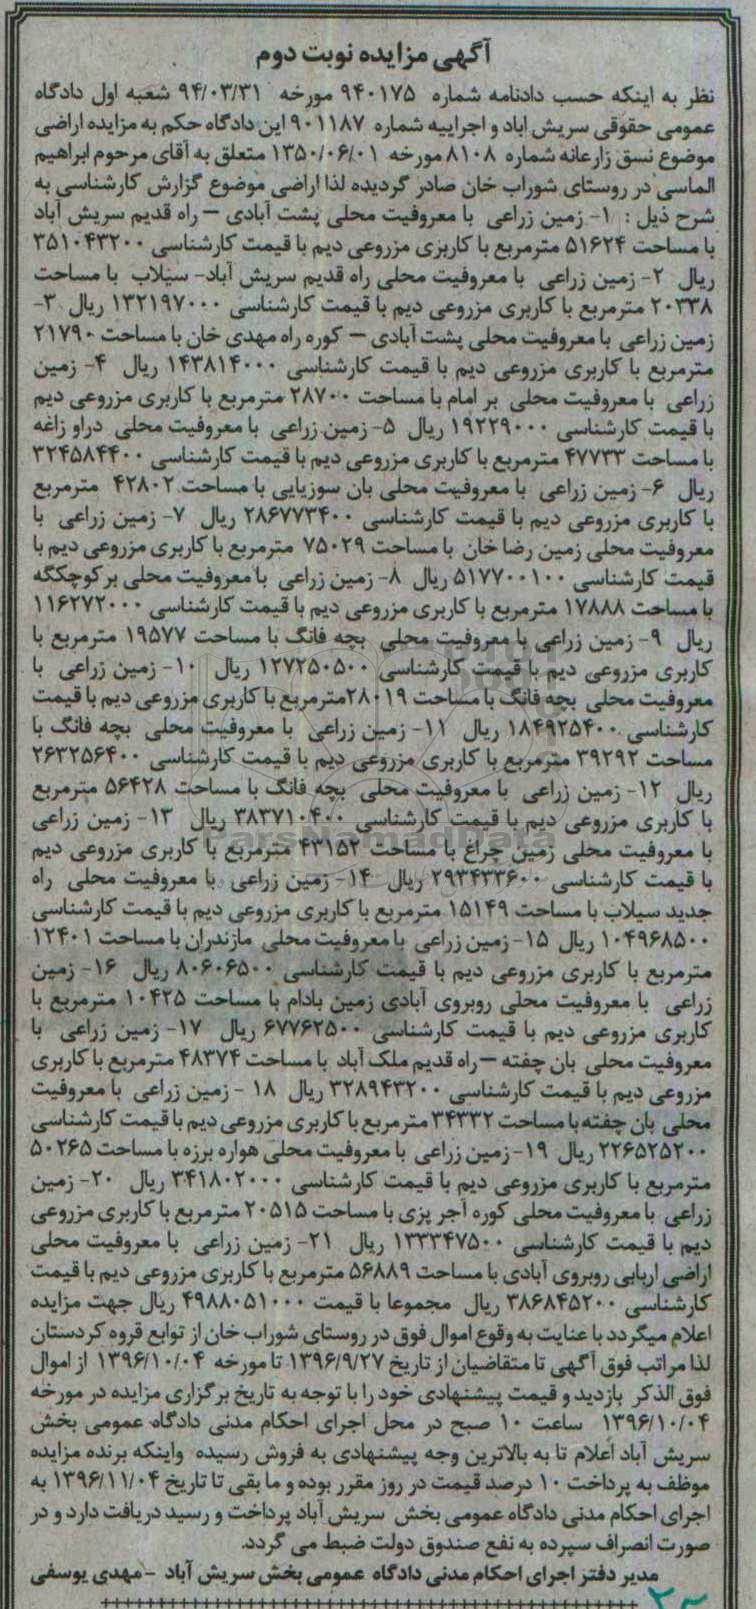 آگهی مزایده نوبت دوم
نظر به اینکه حسب دادنامه شماره ۹۴۰۱۷۵ مورخه ۹۴/۰۳/۳۱ شعبه اول دادگاه
عمومی حقوقی سریش اباد و اجراییه شماره ۹۰۱۱۸۷ این دادگاه حکم به مزایده اراضی
موضوع نسق زارعانه شماره ۸۱۰۸ مورخه ۱۳۵۰/۰۶/۰۱ متعلق به آقای مرحوم ابراهیم
الماسی در روستای شوراب خان صادر گردیده لذا اراضی موضوع گزارش کارشناسی به
شرح ذیل : ۱- زمین زراعی با معروفیت محلی پشت آبادی – راه قدیم سریش آباد
با مساحت ۵۱۶۲۴ مترمربع با کاربری مزروعی دیم با قیمت کارشناسی ۳۵۱۰۴۳۲۰۰
ریال ۲- زمین زراعی با معروفیت محلی راه قدیم سریش آباد- سیلاب با مساحت
۲۰۳۳۸ مترمربع با کاربری مزروعی دیم با قیمت کارشناسی ۱۳۲۱۹۷۰۰۰ ریال ۳-
زمین زراعی با معروفیت محلی پشت آبادی – کوره راه مهدی خان با مساحت ۲۱۷۹۰
مترمربع با کاربری مزروعی دیم با قیمت کارشناسی ۱۴۳۸۱۴۰۰۰ ریال ۴- زمین
زراعی با معروفیت محلی بر امام با مساحت ۲۸۷۰۰ مترمربع با کاربری مزروعی دیم
با قیمت کارشناسی ۱۹۲۲۹۰۰۰ ریال ۵- زمین زراعی با معروفیت محلی دراو زاغه
با مساحت ۴۷۷۳۳ مترمربع با کاربری مزروعی دیم با قیمت کارشناسی ۳۲۴۵۸۴۴۰۰
ریال ۶- زمین زراعی با معروفیت محلی بان سوزیایی با مساحت ۴۲۸۰۲ مترمربع
با کاربری مزروعی دیم با قیمت کارشناسی ۲۸۶۷۷۳۴۰۰ ریال ۷- زمین زراعی با
معروفیت محلی زمین رضا خان با مساحت ۷۵۰۲۹ مترمربع با کاربری مزروعی دیم با
قیمت کارشناسی ۵۱۷۷۰۰۱۰۰ ریال ۸- زمین زراعی با معروفیت محلی بر کوچکگه
با مساحت ۱۷۸۸۸ مترمربع با کاربری مزروعی دیم با قیمت کارشناسی ۱۱۶۲۷۲۰۰۰
ریال ۹- زمین زراعی با معروفیت محلی بچه فانگ با مساحت ۱۹۵۷۷ مترمربع با
کاربری مزروعی دیم با قیمت کارشناسی ۱۲۷۲۵۰۵۰۰ ریال ۱۰- زمین زراعی با
معروفیت محلی بچه فانگ با مساحت ۲۸۰۱۹مترمربع با کاربری مزروعی دیم با قیمت
کارشناسی ۱۸۴۹۲۵۴۰۰ ریال ۱۱- زمین زراعی با معروفیت محلی بچه فانگ با
مساحت ۳۹۲۹۲ مترمربع با کاربری مزروعی دیم با قیمت کارشناسی ۲۶۳۲۵۶۴۰۰
ریال ۱۲- زمین زراعی با معروفیت محلی بچه فانگ با مساحت ۵۶۴۲۸ مترمربع
با کاربری مزروعی دیم با قیمت کارشناسی ۳۸۳۷۱۰۴۰۰ ریال ۱۳- زمین زراعی
با معروفیت محلی زمین چراغ با مساحت ۴۳۱۵۲ مترمربع با کاربری مزروعی دیم
با قیمت کارشناسی ۲۹۳۴۳۳۶۰۰ ریال ۱۴- زمین زراعی با معروفیت محلی راه
جدید سیلاب با مساحت ۱۵۱۴۹ مترمربع با کاربری مزروعی دیم با قیمت کارشناسی
۱۰۴۹۶۸۵۰۰ ریال ۱۵- زمین زراعی با معروفیت محلی مازندران با مساحت ۱۲۴۰۱
مترمربع با کاربری مزروعی دیم با قیمت کارشناسی ۸۰۶۰۶۵۰۰ ریال ۱۶- زمین
زراعی با معروفیت محلی روبروی آبادی زمین بادام با مساحت ۱۰۴۲۵ مترمربع با
کاربری مزروعی دیم با قیمت کارشناسی ۶۷۷۶۲۵۰۰ ریال ۱۷- زمین زراعی با
معروفیت محلی بان چفته – راه قدیم ملک آباد با مساحت ۴۸۳۷۴ مترمربع با کاربری
مزروعی دیم با قیمت کارشناسی ۳۲۸۹۴۳۲۰۰ ریال ۱۸ - زمین زراعی با معروفیت
محلی بان چفته با مساحت ۳۴۳۳۲ مترمربع با کاربری مزروعی دیم با قیمت کارشناسی
۲۲۶۵۲۵۲۰۰ ریال ۱۹- زمین زراعی با معروفیت محلی هواره برزه با مساحت ۵۰۲۶۵
مترمربع با کاربری مزروعی دیم با قیمت کارشناسی ۳۴۱۸۰۲۰۰۰ ریال ۲۰- زمین
زراعی با معروفیت محلی کوره آجر پزی با مساحت ۲۰۵۱۵ مترمربع با کاربری مزروعی
دیم با قیمت کارشناسی ۱۳۳۳۴۷۵۰۰ ریال ۲۱- زمین زراعی با معروفیت محلی
اراضی اربابی روبروی آبادی با مساحت ۵۶۸۸۹ مترمربع با کاربری مزروعی دیم با قیمت
کارشناسی ۳۸۶۸۴۵۲۰۰ ریال مجموعا با قیمت ۴۹۸۸۰۵۱۰۰۰ ریال جهت مزایده
اعلام میگردد با عنایت به وقوع اموال فوق در روستای شوراب خان از توابع قروه کردستان
لذا مراتب فوق آگهی تا متقاضیان از تاریخ ۱۳۹۶/۹/۲۷ تا مورخه ۱۳۹۶/۱۰/۰۴ از اموال
فوق الذکر بازدید و قیمت پیشنهادی خود را با توجه به تاریخ برگزاری مزایده در مورخه
۱۳۹۶/۱۰/۰۴ ساعت ۱۰ صبح در محل اجرای احکام مدنی دادگاه عمومی بخش
سریش آباد اعلام تا به بالاترین وجه پیشنهادی به فروش رسیده واینکه برنده مزایده
موظف به پرداخت ۱۰ درصد قیمت در روز مقرر بوده و ما بقی تا تاریخ ۱۳۹۶/۱۱/۰۴ به
اجرای احکام مدنی دادگاه عمومی بخش سریش آباد پرداخت و رسید دریافت دارد و در
صورت انصراف سپرده به نفع صندوق دولت ضبط می گردد.
مدیر دفتر اجرای احکام مدنی دادگاه عمومی بخش سریش آباد -مهدی یوسفی
ParsNamadData